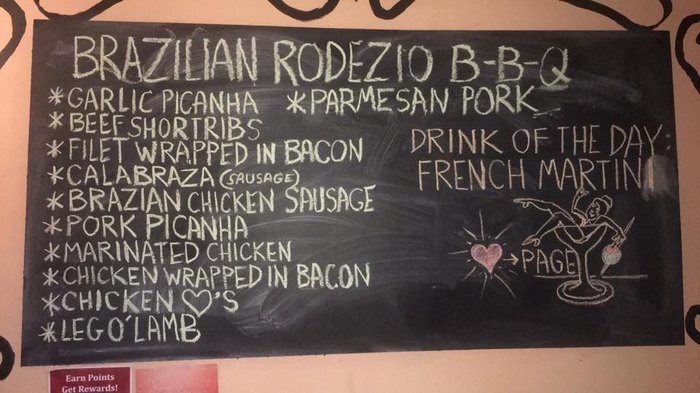 BRAZILIAN RODEZIO B-B-Q
*GARLIC PICANHA *PARMESAN PORK
*BEEF SHORTRIBS
*FILET WRAPPED IN BACON
*CALABRAZA (SAUSAGE)
*BRAZIAN CHICKEN SAUSAGE
*PORK PICANHA
*MARINATED CHICKEN
*CHICKEN WRAPPED IN BACON
*CHICKEN ♡'S
*LEG O'LAMB
DRINK OF THE DAY:
FRENCH MARTINI
♡→PAGE
Earn Points
Get Rewards!